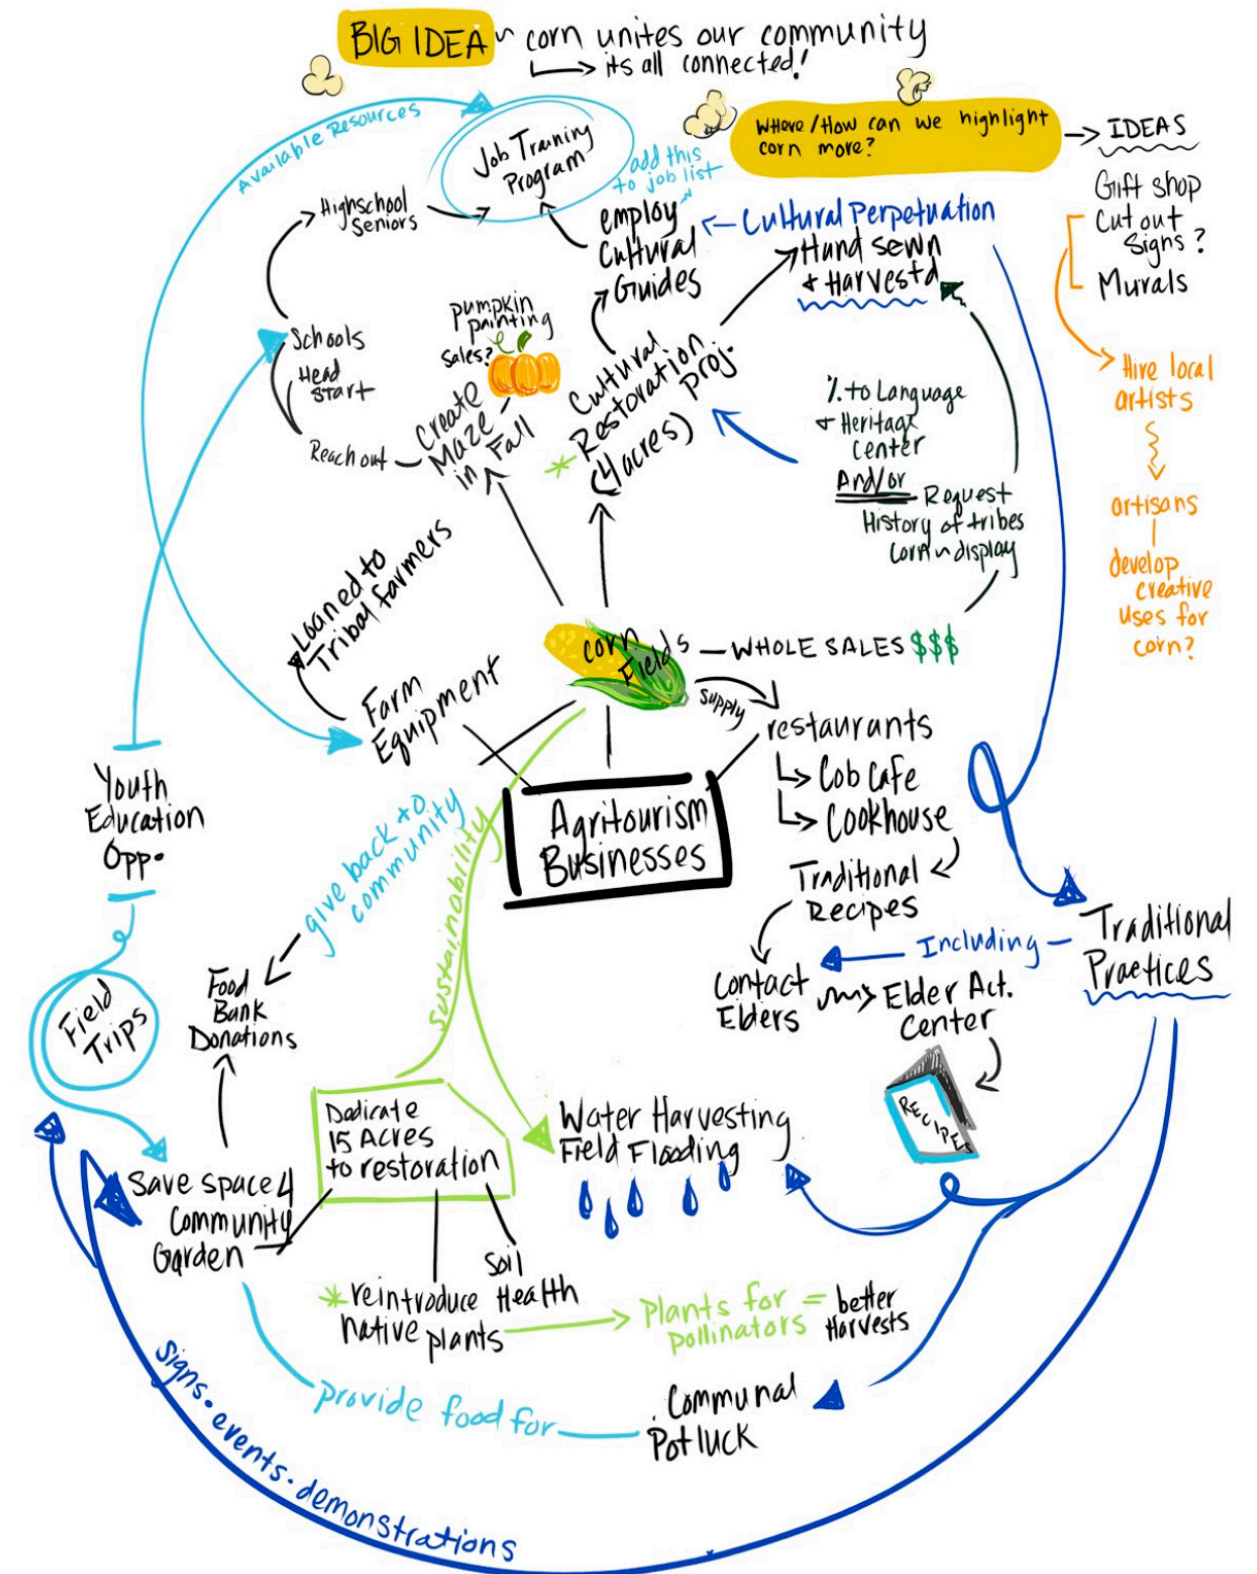 BIG IDEA ~ corn unites our community
its all connected!
Available Resources
Job Training
Program
add this
to job list
Where/How can we highlight
corn more?
IDEAS
Gift shop
Cut out
Signs?
Murals
Hire local
artists
artisans
develop
creative
uses for
corn?
Highschool
Seniors
employ
Cultural
Guides
Cultural Perpetuation
Hand sewn
+ Harvestd
Schools
Head
Start
Reach out
pumpkin
painting
Sales?
Create
Maze
in Fall
* Cultural
Restoration
proj.
(4 acres)
% to Language
+ Heritage
Center
And/or
Request
History of tribes
Corn n display
Loaned to
Tribal farmers
Farm
Equipment
Corn
Fields
WHOLE SALES $$$
supply
restaurants
Cob Cafe
Cookhouse
Traditional
Recipes
Contact
Elders
Elder Act.
Center
RECIPES
Including
Traditional
Practices
Agritourism
Businesses
Youth
Education
Opp.
Field
Trips
give back to
community
Food
Bank
Donations
Sustainability
Dedicate
15 Acres
to restoration
Water Harvesting
Field Flooding
Save space 4
Community
Garden
Soil
Health
* reintroduce
native plants
Plants for
pollinators
= better
Harvests
provide food for
Communal
Potluck
Signs · events · demonstrations